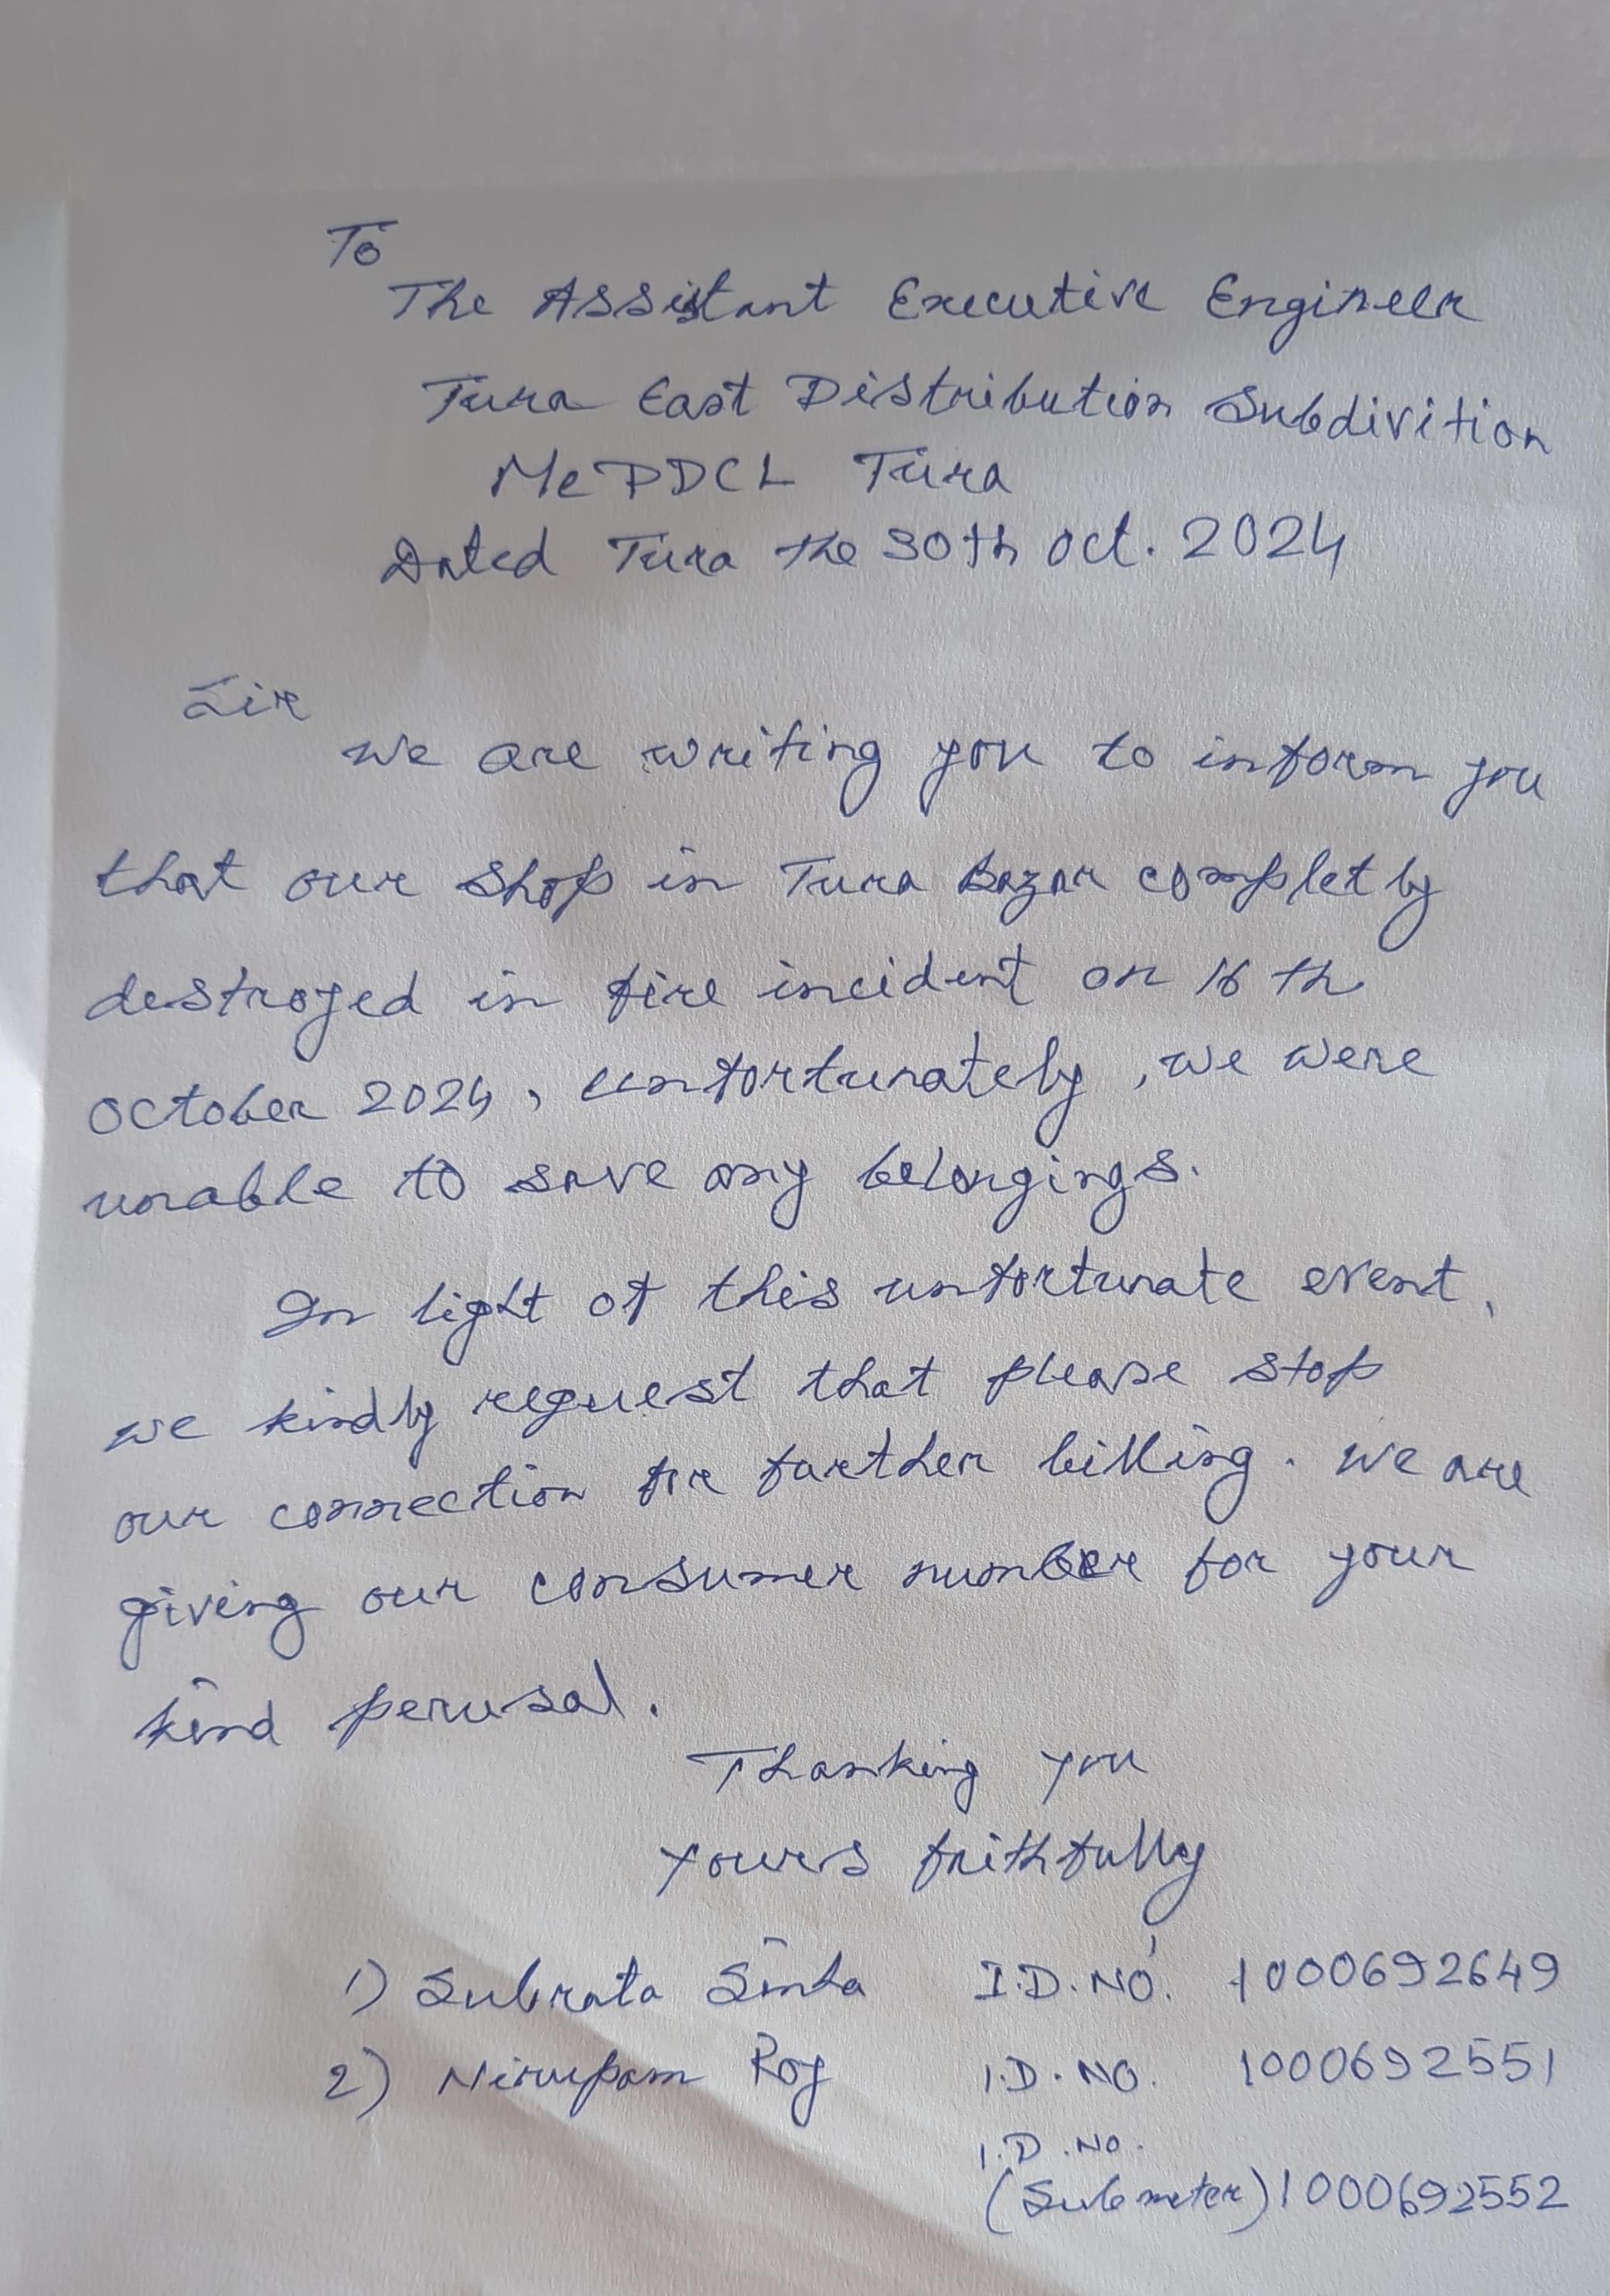 To
The Assistant Executive Engineer
Tura East Distribution Subdivition
MePDCL Tura
Dated Tura the 30th Oct. 2024
Sir
we are writing you to inform you
that our shop in Tura Bazar completly
destroyed in fire incident on 16 th
October 2024, unfortunately, we were
unable to save any belongings.
In light of this unfortunate event,
we kindly request that please stop
our connection for further billing. We are
giving our consumer number for your
kind perusal.
Thanking you
Yours faithfully
1) Subrata Sinha I.D. NO. 1000692649
2) Nirupam Roy I.D. NO. 1000692551
I.D. NO.
(Submeter) 1000692552